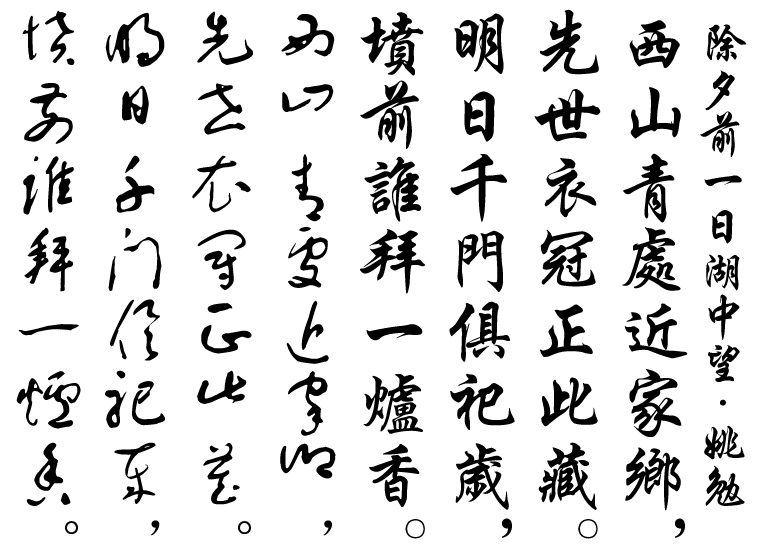 除夕前一日湖中望·姚勉
西山青處近家鄉，
先世衣冠正此藏。
明日千門俱祀歲，
墳前誰拜一爐香。
西山青處近家鄉，
先世衣冠正此藏。
明日千門俱祀歲，
墳前誰拜一爐香。